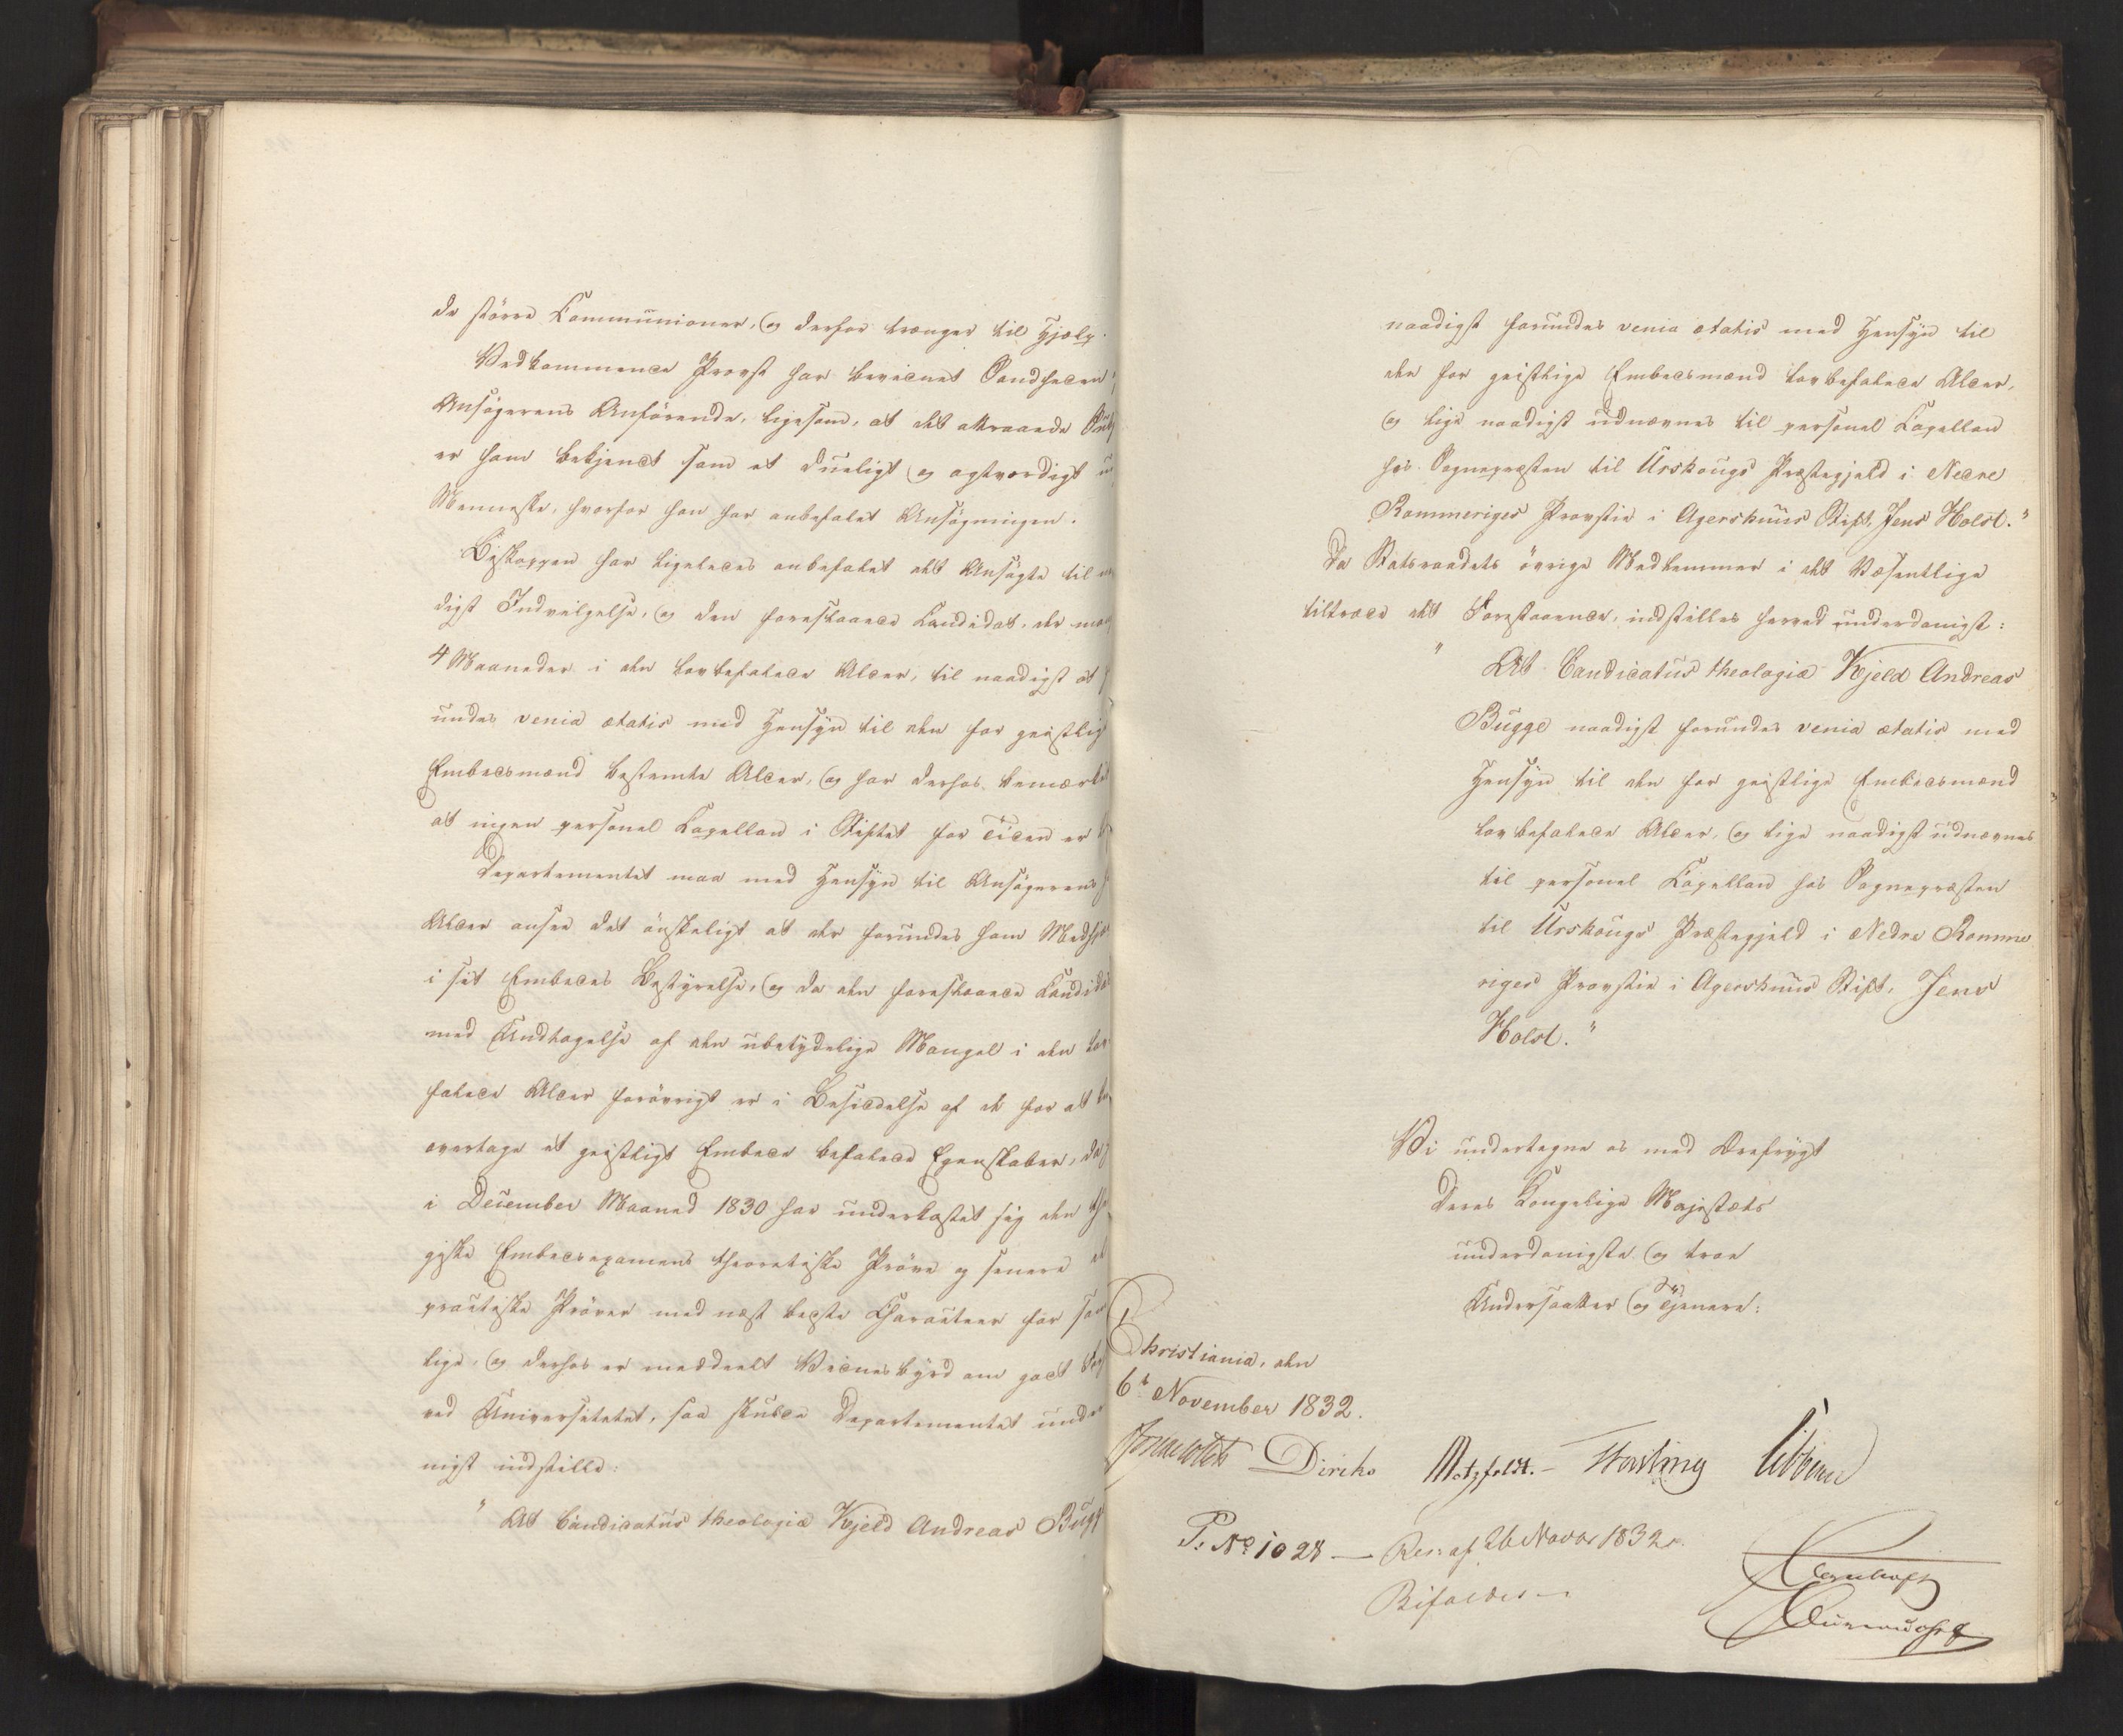 de større Communioner, og derfor trænger til Hjælp.
Vedkommende Provst har bevidnet Sandheden
Ansøgerens Anførende, ligesom, at det attraaede
er ham bekjendt som et dueligt og agtværdigt
Menneske, hvorfor han har anbefalet Ansøgningen.
Biskoppen har ligeledes anbefalet det Ansøgte til
digst Indvilgelse, og den foreslaaede Candidat, der
4 Maaneder i den lovbefalede Alder, til naadigst at
undes venia ætatis med Hensyn til den for geistlige
Embedsmænd bestemte Alder, og har derhos bemærket
at ingen personel Capellan i Stiftet for Tiden er
Departementet maa med Hensyn til Ansøgerens
Alder ansee det ønskeligt at der forundes ham Medhjælp
i sit Embedes Bestyrelse, og da den foreslaaede Candidat
med Undtagelse af den ubetydelige Mangel i den lov
falede Alder forøvrigt er i Besiddelse af de for at
overtage et geistligt Embede befalede Egenskaber, da
i December Maaned 1830 har underkastet sig den
giske Embedsexamens theoretiske Prøve og senere
practiske Prøver med næst bedste Charakteer for
lige, og derhos er meddeelt Vidnesbyrd om godt
ved Universitetet, saa skulde Departementet under
nigst indstille:
" At Candidatus theologiæ Kjeld Andreas Bugge
naadigst forundes venia ætatis med Hensyn til
den for geistlige Embedsmænd lovbefalede Alder,
og lige naadigst udnævnes til personel Capellan
hos Sognepræsten til Urskougs Præstegjeld i Nedre
Rommeriges Provstie i Agershuus Stift, Jens Holst."
Da Statsraadets øvrige Medlemmer i det Væsentlige
tiltræde det Forestaaende, indstilles herved underdanigst:
" At Candidatus theologiæ Kjeld Andreas
Bugge naadigst forundes venia ætatis med
Hensyn til den for geistlige Embedsmænd
lovbefalede Alder, og lige naadigst udnævnes
til personel Capellan hos Sognepræsten
til Urskougs Præstegjeld i Nedre Romme
riges Provstie i Agershuus Stift, Jens
Holst."
Vi undertegne os med Ærefrygt
Deres Kongelige Majestæts
underdanigste og troe
Undersaatter og Tjenere:
Christiania, den
6t November 1832.
Diriks Motzfeldt.
P. No 1028 — Res: af 26 Novbr 1832.
Bifaldes